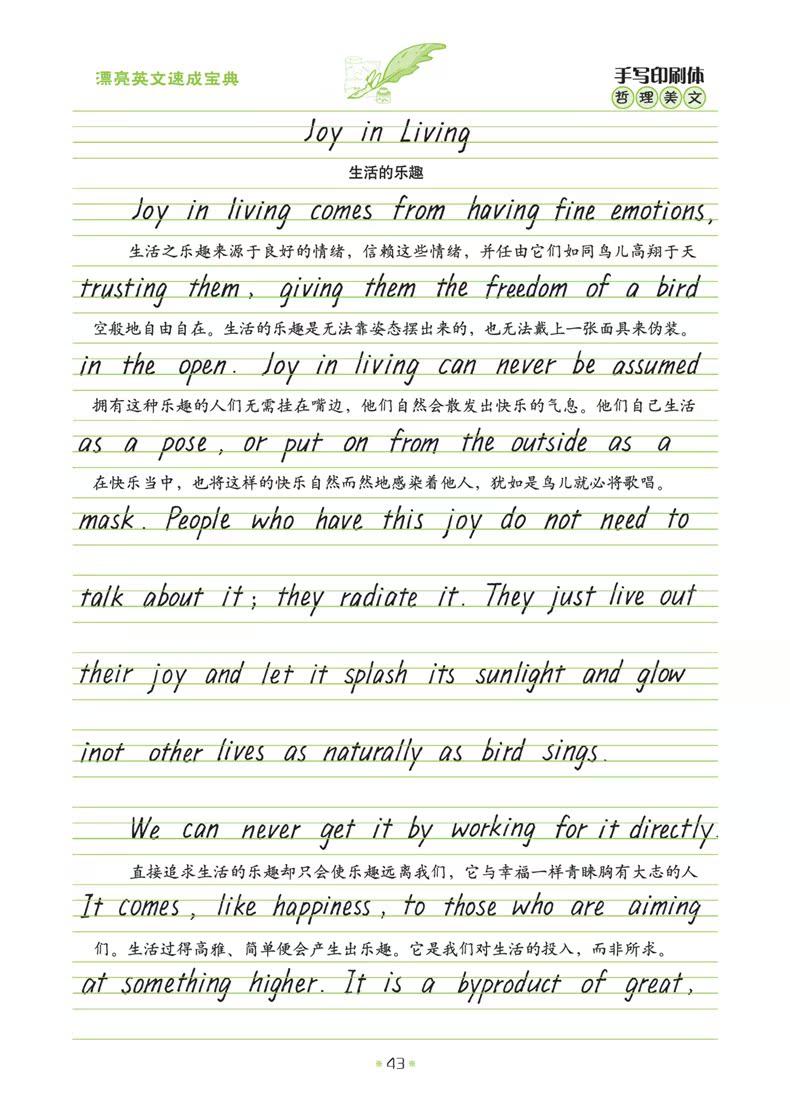 漂亮英文速成宝典
手写印刷体
哲理美文
Joy in Living
生活的乐趣
Joy in living comes from having fine emotions,
生活之乐趣来源于良好的情绪，信赖这些情绪，并任由它们如同鸟儿高翔于天
trusting them, giving them the freedom of a bird
空般地自由自在。生活的乐趣是无法靠姿态摆出来的，也无法戴上一张面具来伪装。
in the open. Joy in living can never be assumed
拥有这种乐趣的人们无需挂在嘴边，他们自然会散发出快乐的气息。他们自己生活
as a pose, or put on from the outside as a
在快乐当中，也将这样的快乐自然而然地感染着他人，犹如是鸟儿就必将歌唱。
mask. People who have this joy do not need to
talk about it; they radiate it. They just live out
their joy and let it splash its sunlight and glow
inot other lives as naturally as bird sings.
We can never get it by working for it directly.
直接追求生活的乐趣却只会使乐趣远离我们，它与幸福一样青睐胸有大志的人
It comes, like happiness, to those who are aiming
们。生活过得高雅、简单便会产生出乐趣。它是我们对生活的投入，而非所求。
at something higher. It is a byproduct of great,
43